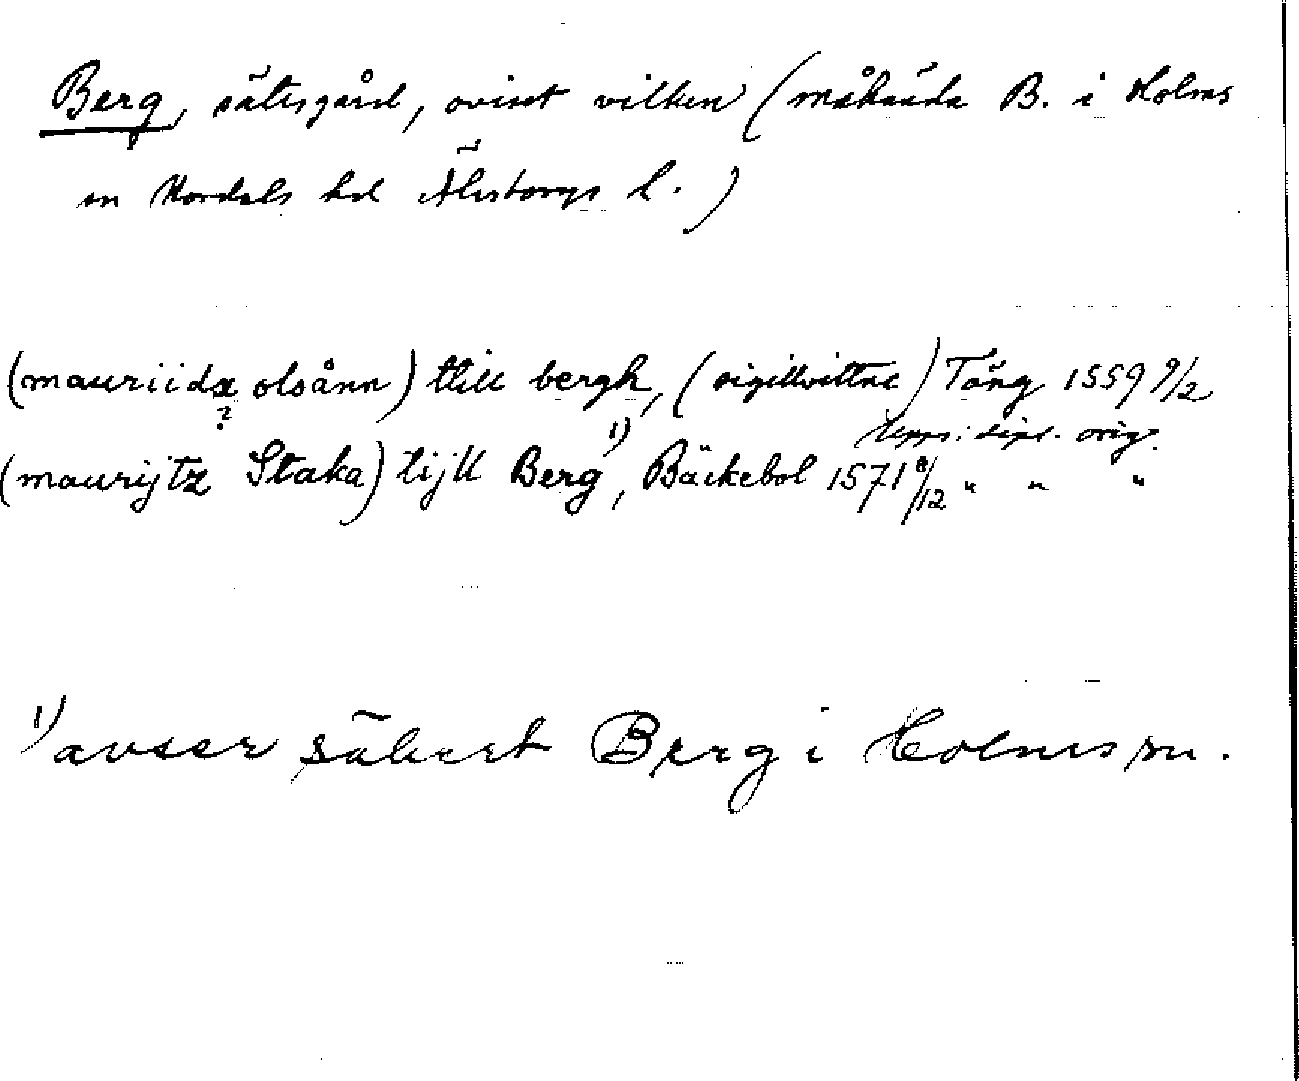 Berg, sätesgård, ovisst vilken (måhända B. i Holms
sn Nordals hd Älvsborgs l.)
(mauriidz olsånn) tlill bergh, (sigillvittne) Tång 1559 9/2
? Upps: dipl. orig.
(maurijtz Staka) tijll Berg 1), Bäckebol 1571 8/12 " " "
1) avser säkert Berg i Holms sn.